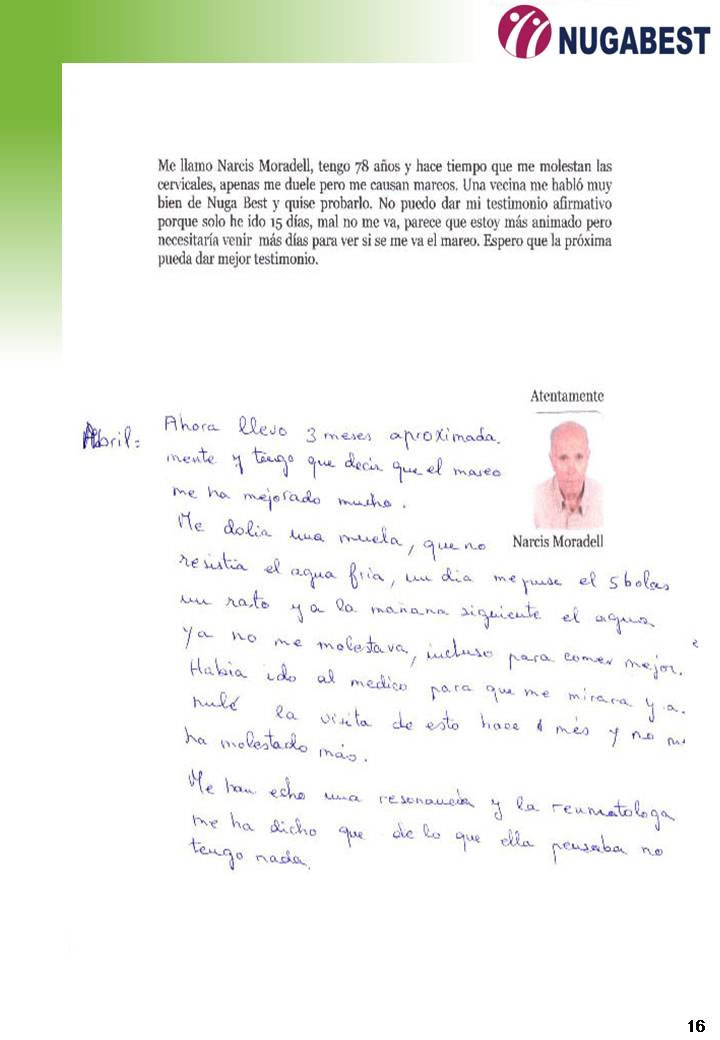 NUGABEST
Me llamo Narcis Moradell, tengo 78 años y hace tiempo que me molestan las
cervicales, apenas me duele pero me causan mareos. Una vecina me habló muy
bien de Nuga Best y quise probarlo. No puedo dar mi testimonio afirmativo
porque solo he ido 15 días, mal no me va, parece que estoy más animado pero
necesitaría venir más días para ver si se me va el mareo. Espero que la próxima
pueda dar mejor testimonio.
Atentamente
Narcis Moradell
Abril: Ahora llevo 3 meses aproximada.
mente y tengo que decir que el mareo
me ha mejorado mucho.
Me dolia una muela, que no
resistia el agua fria, un dia me puse el 5 bolas
un rato y a la mañana siguiente el agua
ya no me molestava, incluso para comer mejor.
Habia ido al medico para que me mirara y a.
nulé la visita de esto hace 1 més y no m
ha molestado más.
Me han echo una resonancia y la reumatologa
me ha dicho que de lo que ella pensaba no
tengo nada.
16